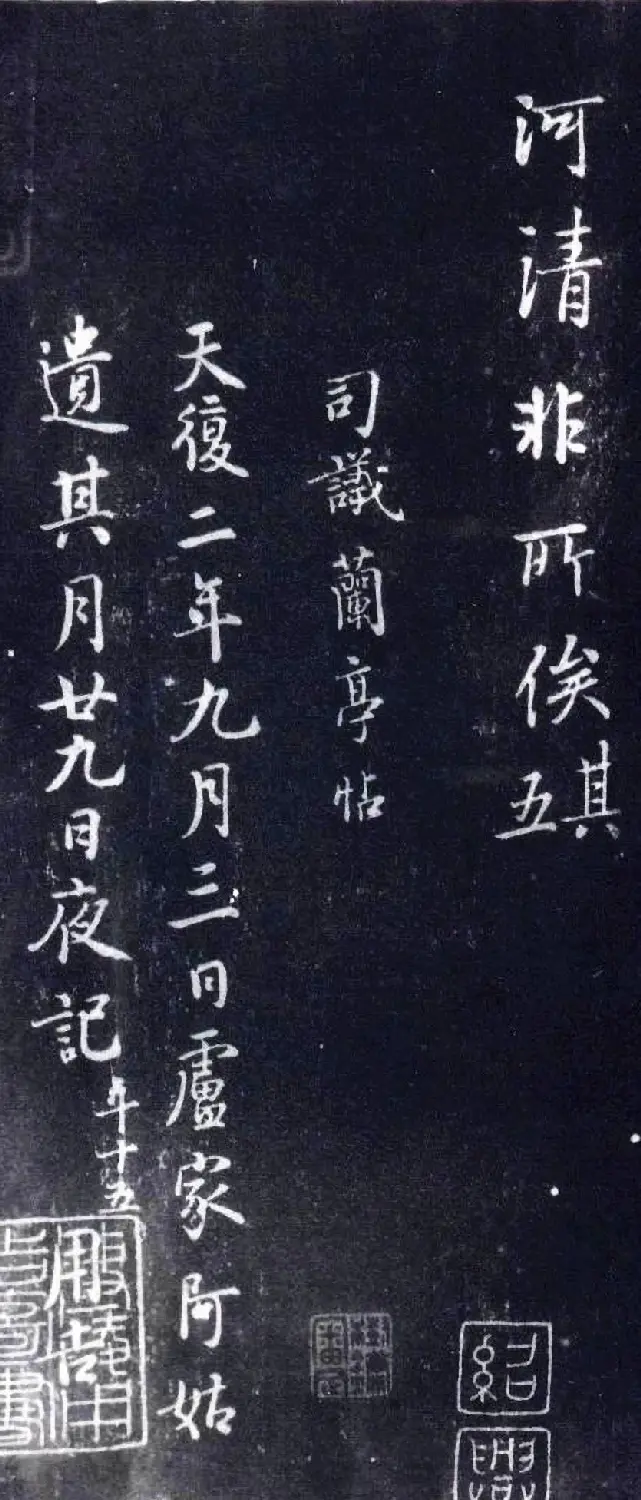 河清非所俟其五
司議蘭亭帖
天復二年九月三日盧家阿姑
遺其月廿九日夜記年十五
紹
興